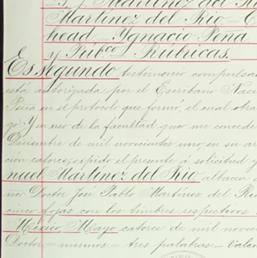 5, y Martinez del Rí
Martinez del Rio - C
head - Ygnacio Peña
y Pub.co - Rúbricas.
Es segundo testimonio compulsa
está autorizada por el Escribano Nac
Peña en el protocolo que formó, el cual obra
go Y en uso de la facultad que me concede
Diciembre de mil novecientos uno, en su ar
ción catorce, expido el presente á solicitud
nuel Martinez del Rio albacea
ñor Doctor José Pablo Martinez del Rí
cinco fojas con los timbres respectivos
México, Mayo catorce de mil novec
Doctor - mismos - tres palabras - Valen